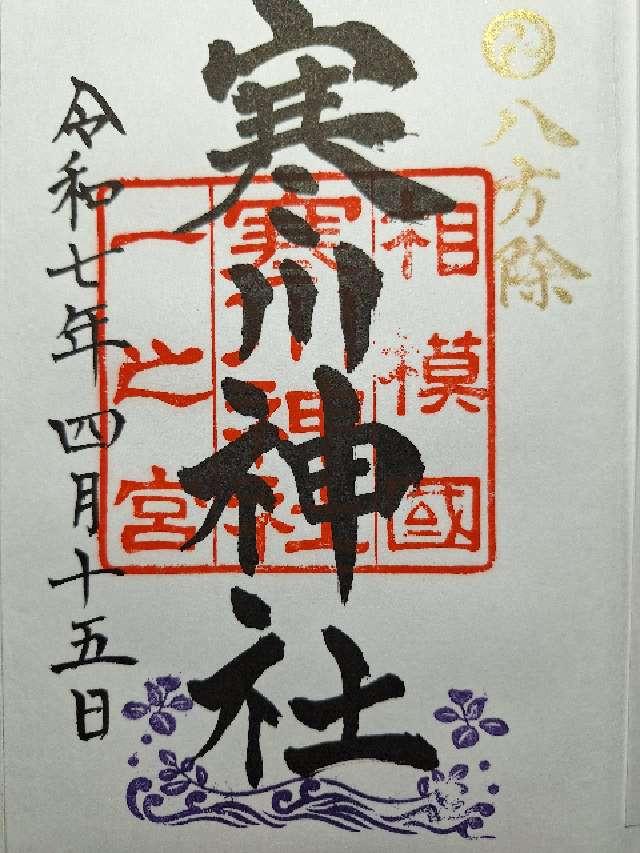 八方除
寒川神社
相模國
寒川神社
一之宮
令和七年四月十五日